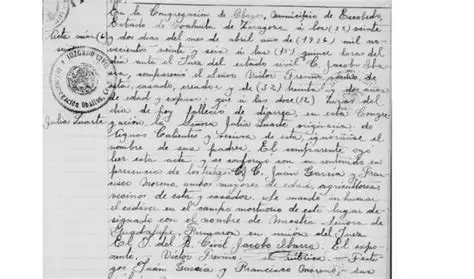 En la Congregacion de Obayos, Municipio de Escobedo,
Estado de Coahuila de Zaragoza á los (22) veinte
y dos dias del mes de abril año de (1926) mil no-
vecientos veinte y seis á las (15) quince horas del
dia ante el Juez del estado civil C. Jacobo Iba-
rra, compareció el Señor Victor Treviño vecino de
esta, casado, creador y de (32) treinta y dos años
de edad y expuso: que á las doce (12) horas del
dia de hoy falleció de diarrea, en esta Congre
Julia Duarte gación la Señora Julia Duarte originaria de
Aguas Calientes y vecina de esta ignorandose el
nombre de sus padres. El compareciente oyó
leer esta acta y se conformó con su contenido en
presencia de los testigos C. C. Juan Garcia y Fran-
cisco Moreno, ambos mayores de edad, agricultores
vecinos de esta y casados. Se mandó inhumar
el cadaver en el campo mortuorio de este lugar de-
signado con el nombre de Nuestra Señora
de Guadalupe. Firmaron en union del Juez
El J. del E. Civil Jacobo Ibarra. El expo-
nente, Victor Treviño. rúbrica. Testi-
gos, Juan Garcia y Francisco Moreno, sus
JUZGADO CIVIL